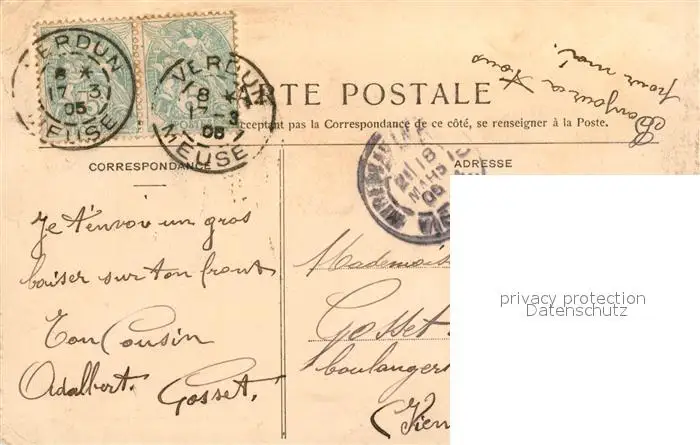 VERDUN
8 *
17-3
05
MEUSE
VERDUN
18 *
17-3
05
MEUSE
CARTE POSTALE
acceptant pas la Correspondance de ce côté, se renseigner à la Poste.
Bonjour a tous
pour moi.
CORRESPONDANCE
ADRESSE
18
MARS
05
Je t'envoie un gros
baiser sur ton front
Ton Cousin
Adalbert. Gosset.
Mademois
Gosset
boulanger
Vien
privacy protection
Datenschutz